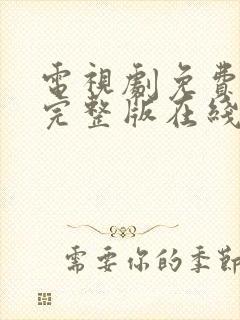 電視劇免費
完整版在綫
需要你的季節